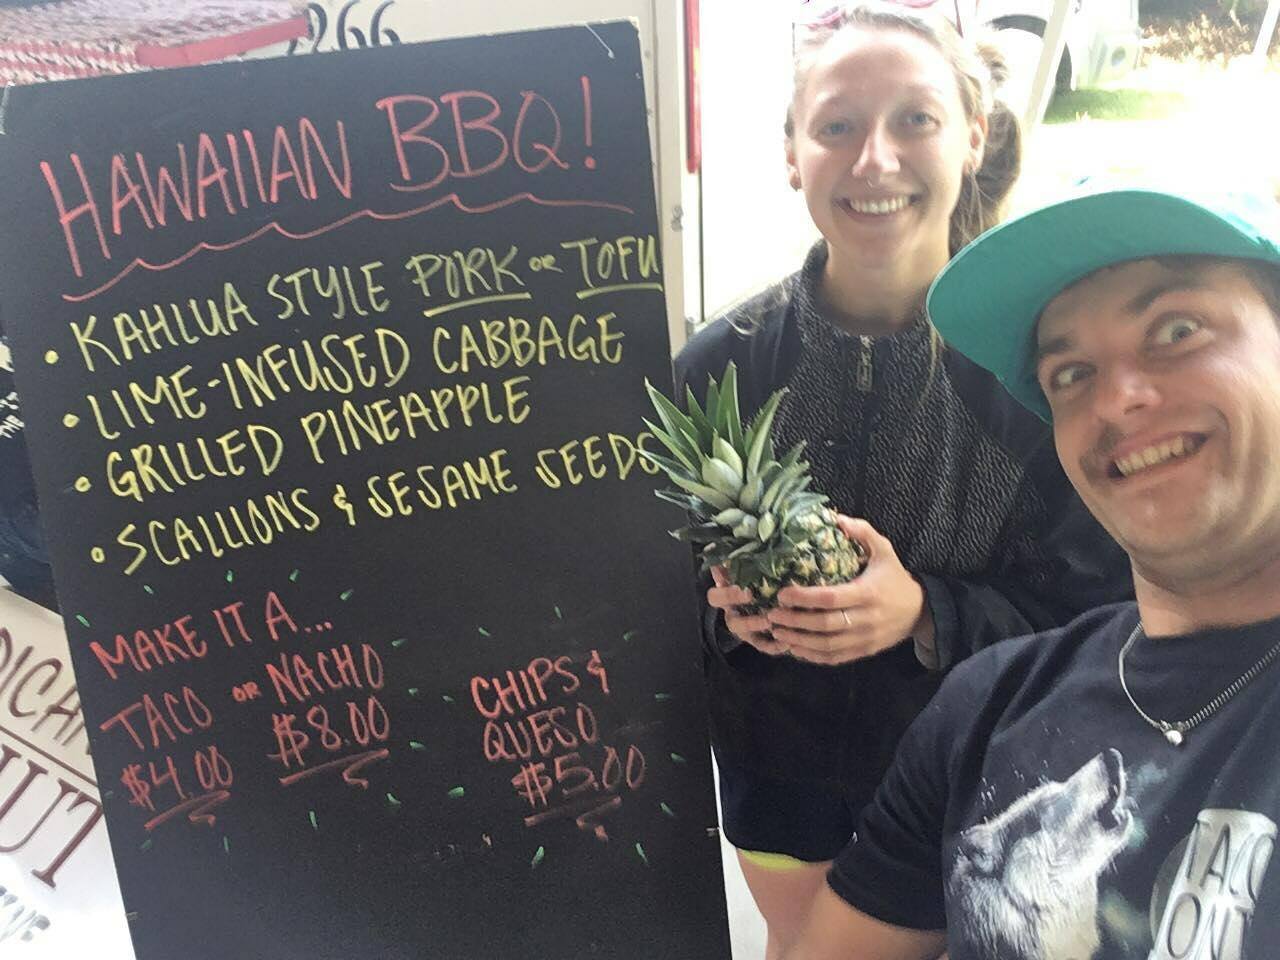 266
HAWAIIAN BBQ!
• KAHLUA STYLE PORK OR TOFU
• LIME-INFUSED CABBAGE
• GRILLED PINEAPPLE
• SCALLIONS & SESAME SEEDS
MAKE IT A...
TACO OR NACHO
$4.00 $8.00
CHIPS &
QUESO
$5.00
TACO